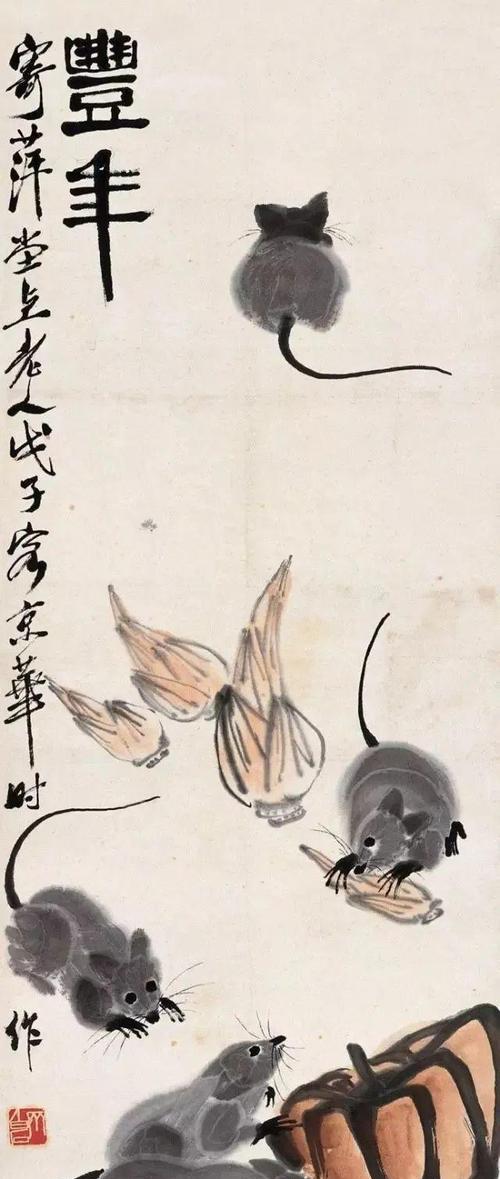 豐年
寄萍堂上老人戊子客京華时作